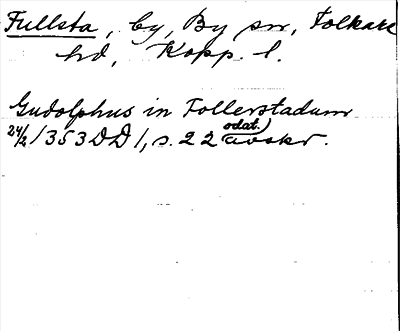 Fullsta, by, By sn, Folkare
hd, Kopp. l.
Gudolphus in Follerstadum
24/2 1353 DD 1, s. 22 (odat.) avskr.